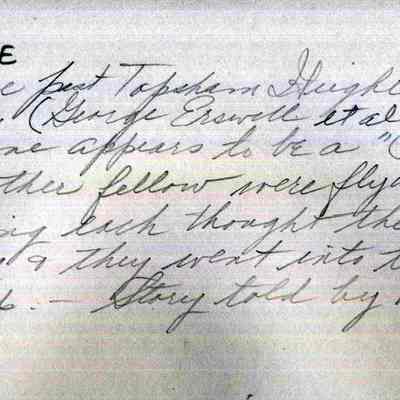 E
e past Topsham Heigh
. (George Erswell et al
ne appears to be a "(
ther fellow were fly
ng each thought the
& they went into t
. — Story told by